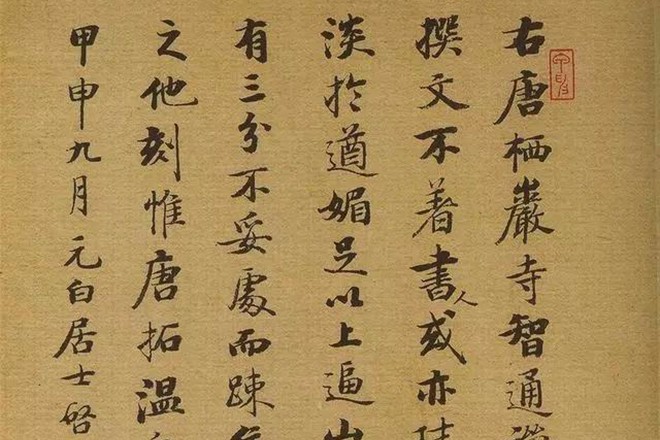 右唐栖巖寺智通禪
撰文不著書人或亦
淡於遒媚足以上逼
有三分不妥處而踈
之他刻惟唐拓温
甲申九月元白居士啓